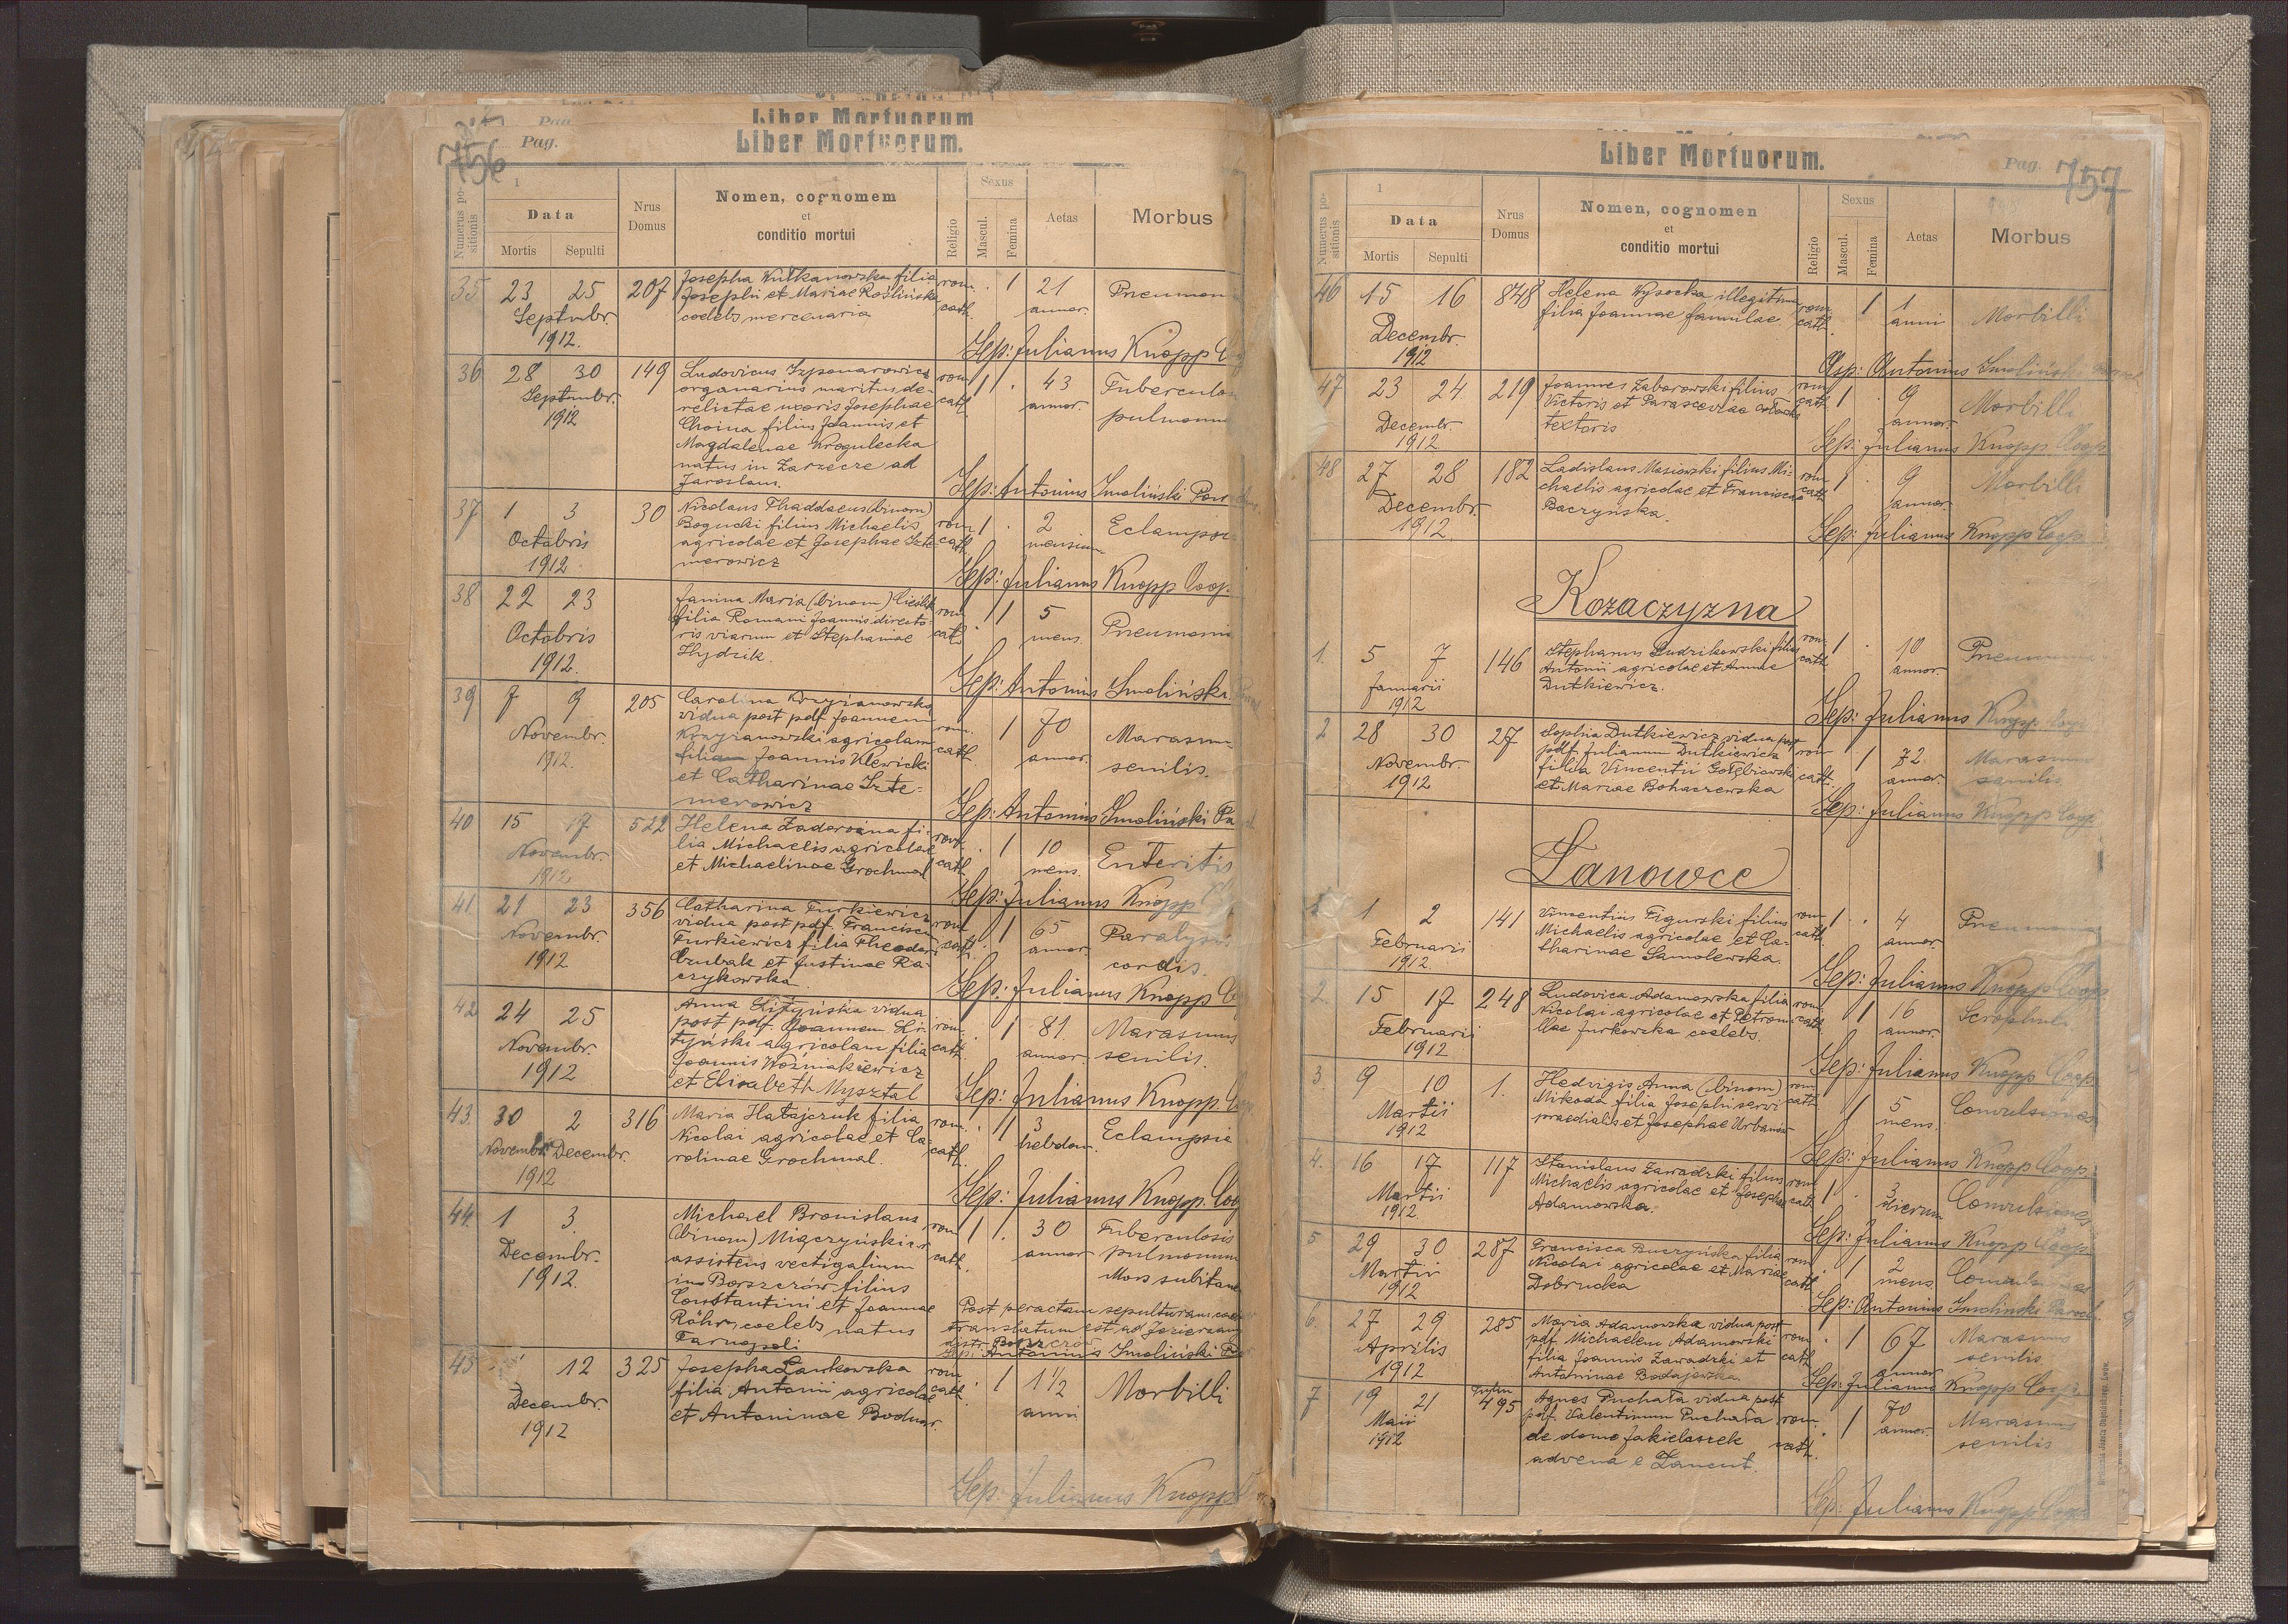 Liber Mortuorum
Pag.
Liber Mortuorum.
756
Numerus positionis
Data
Mortis
Sepulti
Nrus Domus
Nomen, cognomem
et
conditio mortui
Religio
Sexus
Mascul.
Femina
Aetas
Morbus
35 23 25 207
Septmbr.
1912.
Josepha Kutkanowska filia
Josephi et Mariae Roślińska
coelebs mercenaria
rom. cath.
1
21
annor.
Sep: Julianus Knopp
36 28 30 149
Septmbr.
1912
Ludovicus Szponarowicz
organarius maritus de-
relictae uxoris Josephae
Choina filius Joannis et
Magdalenae Krogulecka
natus in Zarzecze ad
Jaroslau.
rom cath.
1
43
annor.
Sep: Antonius Smoliński
37 1 3 30
Octobris
1912
Nicolaus Thaddaeus (binom)
Bogucki filius Michaelis
agricolae et Josephae Szte-
merowicz
rom cath.
1
2
mensium
Sep: Julianus Knopp Coop.
38 22 23
Octobris
1912.
Janina Maria (binom)
filia Romani Joannis directo-
ris viarum et Stephaniae
Hydzik.
rom. cath.
1
5
mens.
Pneumonia
Sep: Antonius Smoliński
39 7 9 205
Novembr.
1912.
Carolina Krzyżanowska
vidua post pdf. Joannem
Krzyżanowski agricolam
filiam Joannis Klewicki
et Catharinae Szte-
merowicz
rom. cath.
1
70
annor.
senilis.
Sep: Antonius Smoliński
40 15 17 522
Novembr.
1912
Helena Zadorożna fi-
lia Michaelis agricolae
et Michaelinae Grochmal
rom. cath.
1
10
mens.
Enteritis
Sep: Julianus Knopp
41 21 23 356
Novembr.
1912
Catharina Turkiewicz
vidua post pdf. Franciscum
Turkiewicz filia Theodori
Czubak et Justinae Ra-
czykowska.
rom. cath.
1
65
annor.
Paralysis
cordis.
Sep: Julianus Knopp
42 24 25
Novembr.
1912
Anna Lityńska vidua
post pdf. Joannem Li-
tyński agricolam filia
Joannis Woźniakiewicz
et Elisabeth Mysztal
rom. cath.
1
81.
annor.
Marasmus
senilis.
Sep: Julianus Knopp.
43. 30 2 316
Novembr. Decembr.
1912
Maria Hatajczuk filia
Nicolai agricolae et Ca-
rolinae Grochmal.
rom. cath.
1
3
hebdom.
Eclampsie
Sep: Julianus Knopp.
44. 1 3.
Decembr.
1912.
Michael Bronislaus
(binom) Miączyński
assistens vectigalium
in Borszczów filius
Constantini et Joannae
Röhr, coelebs natus
Tarnopoli
rom cath.
1
30
annor.
Tuberculosis
pulmonum
Mors
Post peractam sepulturam
translatum est ad
distr. Borszczów
Sep: Antonius Smoliński
45 12 325
Decembr.
1912
Josepha Lankowska
filia Antonii agricolae
et Antoninae Bodnar.
rom cath.
1
1½
anni
Morbilli
Sep: Julianus Knopp
Liber Mortuorum.
Pag. 757
Numerus positionis
Data
Mortis
Sepulti
Nrus Domus
Nomen, cognomen
et
conditio mortui
Religio
Sexus
Mascul.
Femina
Aetas
Morbus
46 15 16 848
Decembr.
1912
Helena Wysocka illegitima
filia Joannae famulae
rom. cath.
1
1
anni
Morbilli
Sep: Antonius Smoliński
47 23 24 219
Decembr.
1912
Joannes Zaborowski filius
Victoris et Parasceviae
textoris
rom. cath.
1
9
annor.
Morbilli
Sep: Julianus Knopp Coop.
48 27 28 182
Decembr.
1912
Ladislaus Masiowski filius Mi-
chaelis agricolae et Franciscae
Baczyńska.
rom. cath.
1
9
annor.
Morbilli
Sep: Julianus Knopp Coop.
Kozaczyzna
1. 5 7 146
Januarii
1912
Stephanus Dudzikowski filius
Antonii agricolae et Annae
Dutkiewicz.
rom. cath.
1
10
annor.
Pneumonia
Sep: Julianus Knopp. Coop.
2 28 30 27
Novembr.
1912
Sophia Dutkiewicz vidua post
pdf. Julianum Dutkiewicz
filia Vincentii Gołębiowski
et Mariae Bohaczewska
rom cath.
1
72
annor.
Marasmus
senilis
Sep: Julianus Knopp Coop.
Łanowce
1 2 141
Februarii
1912.
Vincentius Figurski filius
Michaelis agricolae et Ca-
tharinae Samolewska.
rom cath.
1
4
annor.
Pneumonia
Sep: Julianus Knopp Coop.
2. 15 17 248
Februarii
1912
Ludovica Adamowska filia
Nicolai agricolae et Petronel-
lae Jurkowska coelebs.
rom cath.
1
16
annor.
Sep: Julianus Knopp Coop.
3. 9 10 1.
Martii
1912
Hedvigis Anna (binom)
Mikoda filia Josephi servi
praedialis et Josephae
rom. cath.
1
5
mens.
Convulsiones
Sep: Julianus Knopp Coop.
4. 16 17 117
Martii
1912.
Stanislaus Zawadzki filius
Michaelis agricolae et Josephae
Adamowska.
rom. cath.
1
3
dierum
Convulsiones
Sep: Julianus Knopp Coop.
5 29 30 287
Martii
1912
Francisca Buczyńska filia
Nicolai agricolae et Mariae
Dobrucka
rom. cath.
1
2
mens
Sep: Antonius Smoliński Paroch.
6. 27 29 285
Aprilis
1912
Maria Adamowska vidua post
pdf. Michaelem Adamowski
filia Joannis Zawadzki et
Antoninae Bodajewska
rom. cath.
1
67
annor.
Marasmus
senilis
Sep: Julianus Knopp Coop.
7 19 21 495
Maii
1912
Agnes Puchała vidua post
pdf. Valentinum Puchała
de domo Jakielaszek
advena e Łancut.
rom. cath.
1
70
annor.
Marasmus
senilis
Sep: Julianus Knopp Coop.